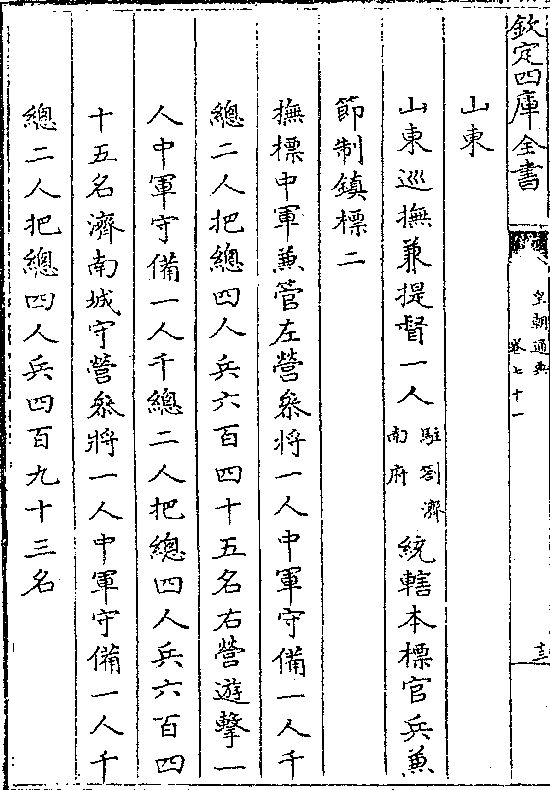 欽定四庫全書
皇朝通典
卷七十一
山東
山東巡撫兼提督一人駐劄濟南府統轄本標官兵兼
節制鎮標二
撫標中軍兼管左營叅將一人中軍守備一人千
總二人把總四人兵六百四十五名右營遊擊一
人中軍守備一人千總二人把總四人兵六百四
十五名濟南城守營叅將一人中軍守備一人千
總二人把總四人兵四百九十三名